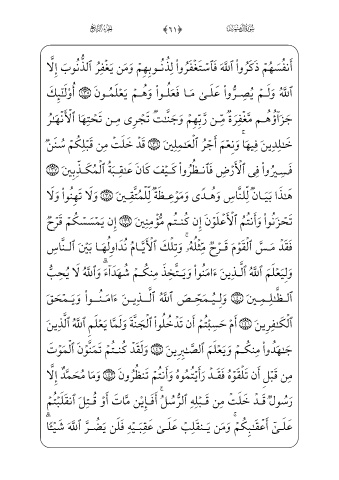 ﴿٦١﴾
أَنفُسَهُمْ ذَكَرُوا۟ ٱللَّهَ فَٱسْتَغْفَرُوا۟ لِذُنُوبِهِمْ وَمَن يَغْفِرُ ٱلذُّنُوبَ إِلَّا
ٱللَّهُ وَلَمْ يُصِرُّوا۟ عَلَىٰ مَا فَعَلُوا۟ وَهُمْ يَعْلَمُونَ أُو۟لَٰٓئِكَ
جَزَآؤُهُم مَّغْفِرَةٌ مِّن رَّبِّهِمْ وَجَنَّٰتٌ تَجْرِى مِن تَحْتِهَا ٱلْأَنْهَٰرُ
خَٰلِدِينَ فِيهَا ۚ وَنِعْمَ أَجْرُ ٱلْعَٰمِلِينَ قَدْ خَلَتْ مِن قَبْلِكُمْ سُنَنٌ
فَسِيرُوا۟ فِى ٱلْأَرْضِ فَٱنظُرُوا۟ كَيْفَ كَانَ عَٰقِبَةُ ٱلْمُكَذِّبِينَ
هَٰذَا بَيَانٌ لِّلنَّاسِ وَهُدًى وَمَوْعِظَةٌ لِّلْمُتَّقِينَ وَلَا تَهِنُوا۟ وَلَا
تَحْزَنُوا۟ وَأَنتُمُ ٱلْأَعْلَوْنَ إِن كُنتُم مُّؤْمِنِينَ إِن يَمْسَسْكُمْ قَرْحٌ
فَقَدْ مَسَّ ٱلْقَوْمَ قَرْحٌ مِّثْلُهُۥ ۚ وَتِلْكَ ٱلْأَيَّامُ نُدَاوِلُهَا بَيْنَ ٱلنَّاسِ
وَلِيَعْلَمَ ٱللَّهُ ٱلَّذِينَ ءَامَنُوا۟ وَيَتَّخِذَ مِنكُمْ شُهَدَآءَ ۗ وَٱللَّهُ لَا يُحِبُّ
ٱلظَّٰلِمِينَ وَلِيُمَحِّصَ ٱللَّهُ ٱلَّذِينَ ءَامَنُوا۟ وَيَمْحَقَ
ٱلْكَٰفِرِينَ أَمْ حَسِبْتُمْ أَن تَدْخُلُوا۟ ٱلْجَنَّةَ وَلَمَّا يَعْلَمِ ٱللَّهُ ٱلَّذِينَ
جَٰهَدُوا۟ مِنكُمْ وَيَعْلَمَ ٱلصَّٰبِرِينَ وَلَقَدْ كُنتُمْ تَمَنَّوْنَ ٱلْمَوْتَ
مِن قَبْلِ أَن تَلْقَوْهُ فَقَدْ رَأَيْتُمُوهُ وَأَنتُمْ تَنظُرُونَ وَمَا مُحَمَّدٌ إِلَّا
رَسُولٌ قَدْ خَلَتْ مِن قَبْلِهِ ٱلرُّسُلُ ۚ أَفَإِي۟ن مَّاتَ أَوْ قُتِلَ ٱنقَلَبْتُمْ
عَلَىٰٓ أَعْقَٰبِكُمْ ۚ وَمَن يَنقَلِبْ عَلَىٰ عَقِبَيْهِ فَلَن يَضُرَّ ٱللَّهَ شَيْـًٔا ۗ